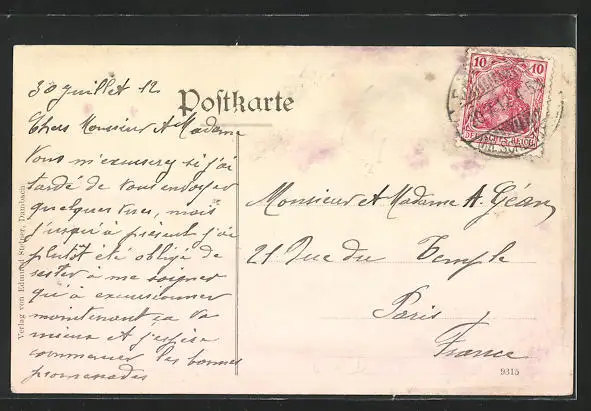 30 Juillet 12
Postkarte
Chers Monsieur et Madame
Vous m'excuserez si j'ai
tardé de vous envoyer
quelques vues, mais
jusqu'à présent j'ai
plutôt été obligé de
rester à me soigner
qu'à excursionner
maintenant ça va
mieux et j'espère
commencer les bonnes
promenades
Monsieur et Madame A. Géan
21 Rue du Temple
Paris
France
10 10
DEUTSCHES REICH
Verlag von Edmund Dambach
9315